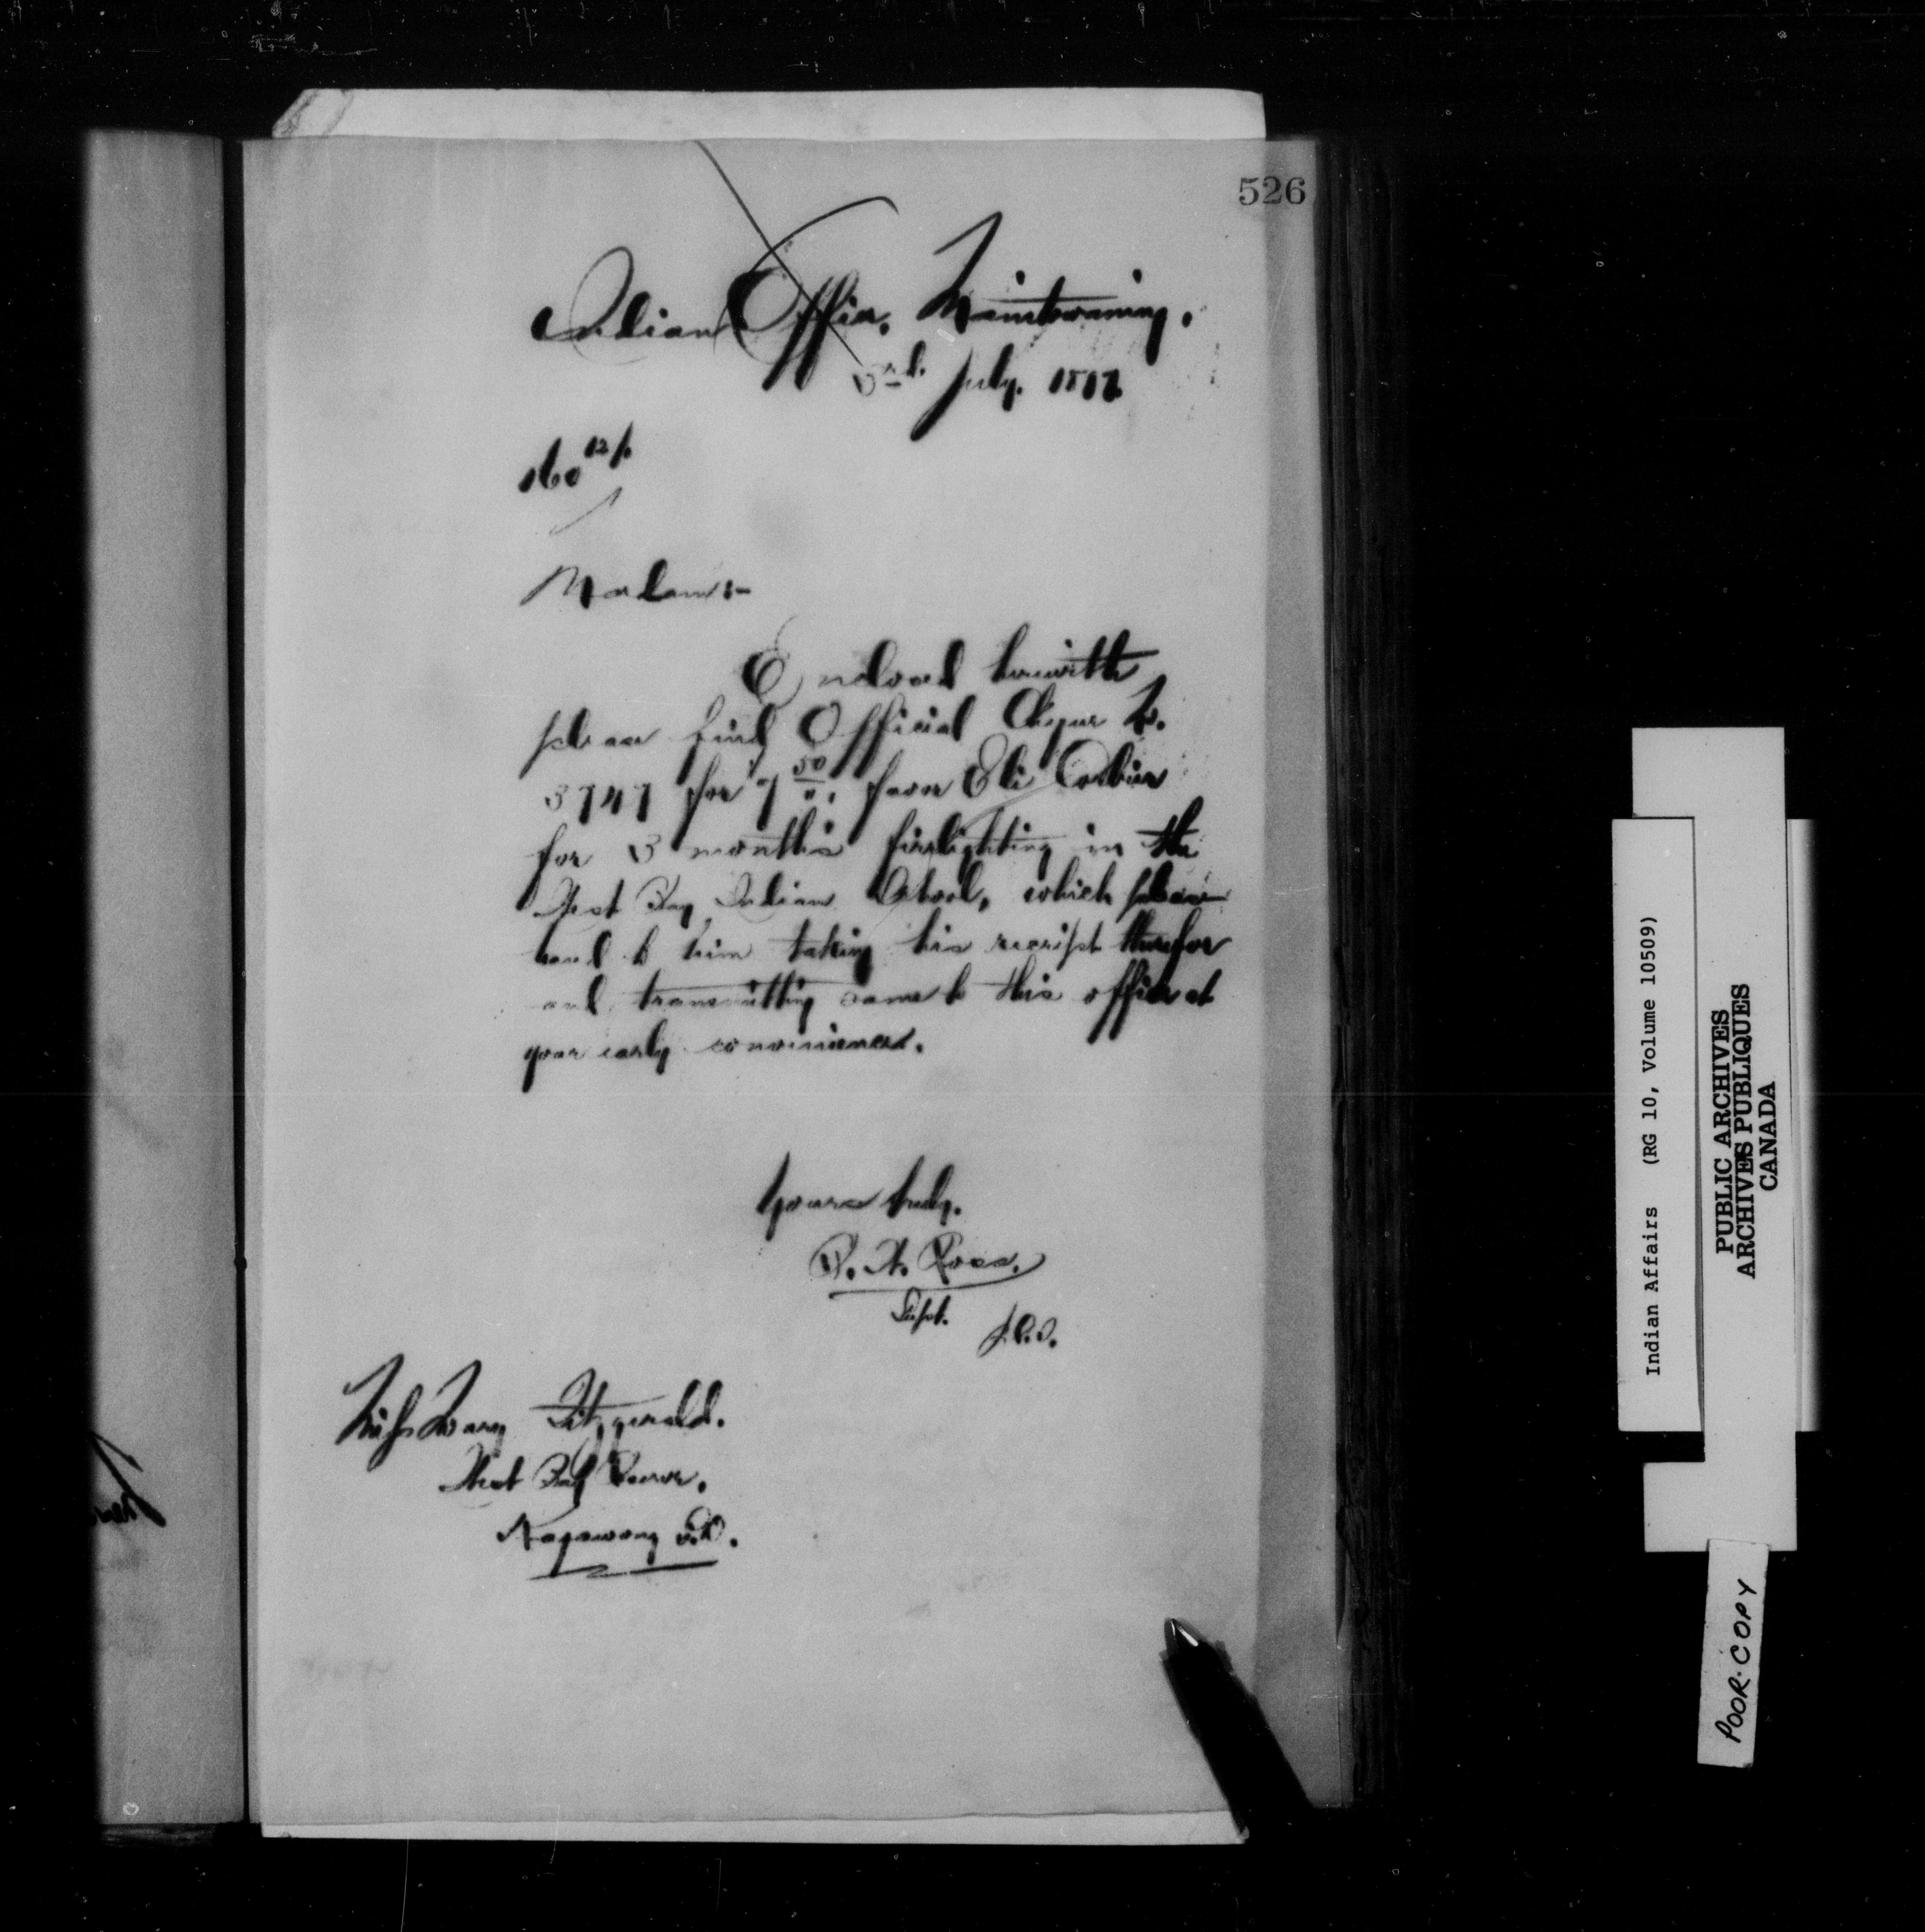 526
Indian Office, Manitowaning.
3rd. July. 1897.
160
Madam:-
Enclosed herewith
please find Official Cheque No.
3747 for 7 50/, favor Eli Corbier
for 3 months firelighting in the
West Bay Indian School, which please
hand to him taking his receipt therefor
and transmitting same to this office at
your early convenience.
Yours truly.
B. W. Ross.
Supt.
Miss Mary Fitzgerald.
West Bay Reserve.
Kagawong P.O.
Indian Affairs (RG 10, Volume 10509)
PUBLIC ARCHIVES
ARCHIVES PUBLIQUES
CANADA
POOR COPY